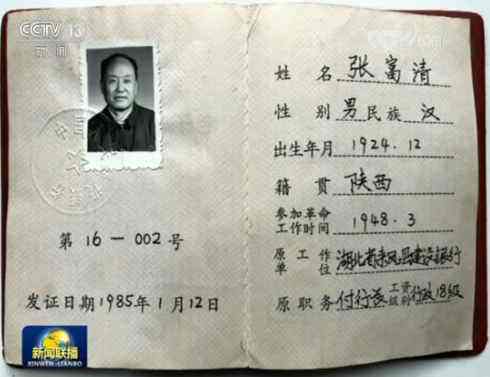 CCTV 13
新闻
CCTV.com
姓名 张富清
性别 男 民族 汉
出生年月 1924.12
籍贯 陕西
参加革命
工作时间 1948.3
原工作
单位 湖北省来凤县建设银行
原职务 付行长 工资
级别 行政18级
第16-002号
发证日期1985年1月12日
新闻联播
XINWEN LIANBO